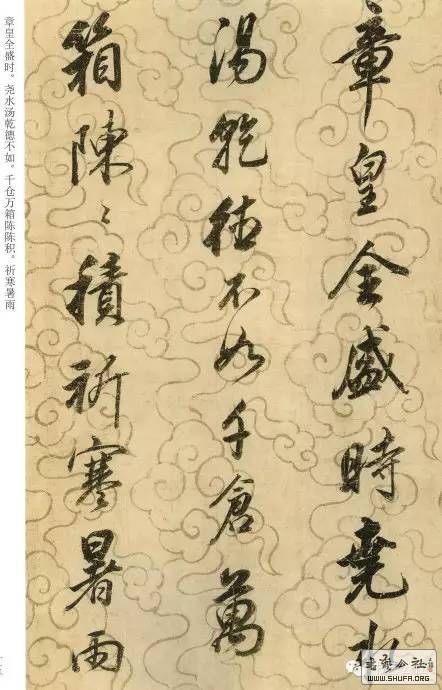 章皇全盛時堯水
湯乾德不如千倉萬
箱陳〻積祈寒暑雨
章皇全盛时。尧水汤乾德不如。千仓万箱陈陈积。祈寒暑雨
WWW.SHUFA.ORG